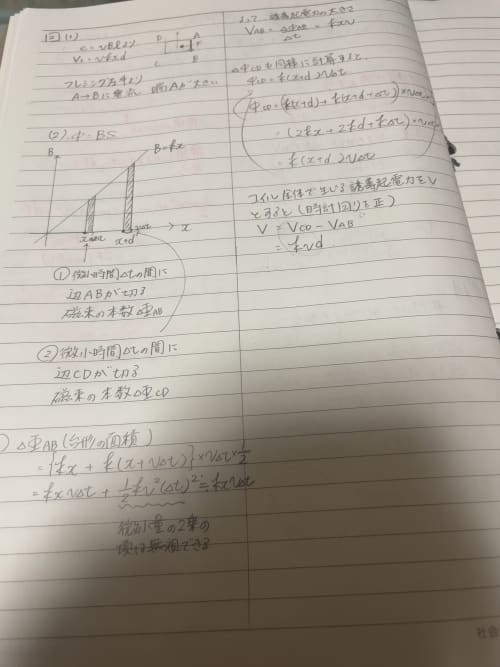 (1)
e = vBlより
V₁ = vkxd
D A
F
C B
フレミング左手より
A→Bに電流 端Aが大きい
(2) Φ=BS
B
B=kx
x
x+d
① 微小時間Δtの間に
辺ABが切る
磁束の本数ΔΦAB
② 微小時間Δtの間に
辺CDが切る
磁束の本数ΔΦCD
ΔΦAB(台形の面積)
= {kx + k(x+vΔt)}×vΔt×1/2
= kxvΔt + 1/2kv²(Δt)² ≒ kxvΔt
微小量の2乗の
項は無視できる
よって 誘導起電力の大きさ
VAB = ΔΦAB/Δt = kxv
ΔΦCDも同様に計算すると、
ΦCD = k(x+d)vΔt
ΦCD = {k(x+d)+k(x+d+Δt)}×vΔt
= (2kx+2kd+kΔt)×vΔt
= k(x+d)vΔt
コイル全体で生じる誘導起電力をV
とすると(時計回りを正)
V = VCD - VAB
= kvd
社会